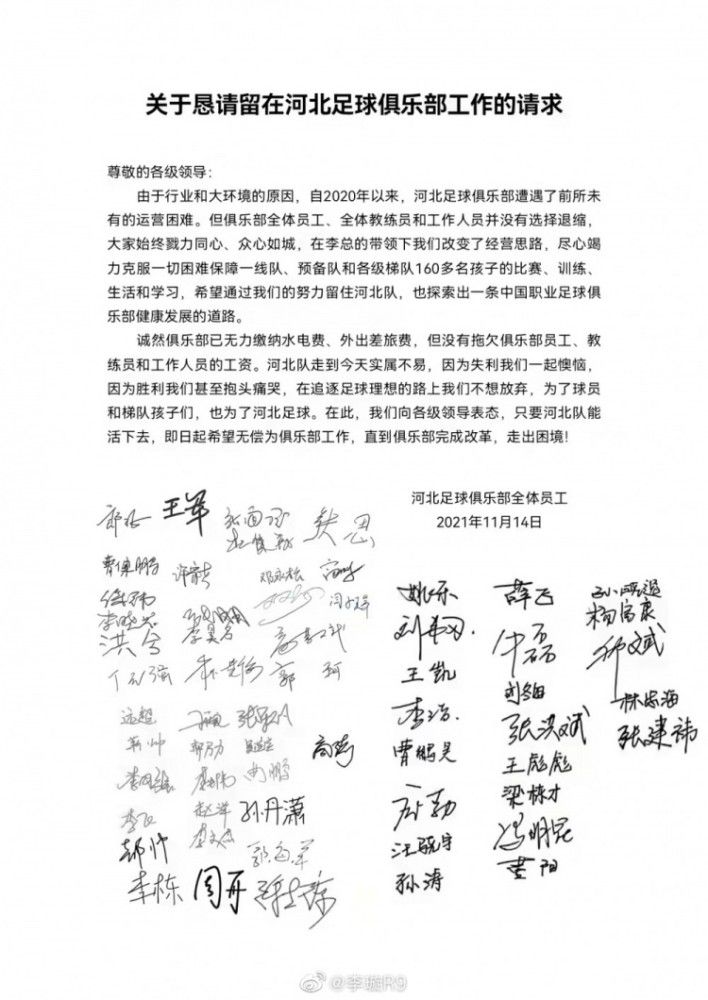 关于恳请留在河北足球俱乐部工作的请求
尊敬的各级领导：
由于行业和大环境的原因，自2020年以来，河北足球俱乐部遭遇了前所未
有的运营困难。但俱乐部全体员工、全体教练员和工作人员并没有选择退缩，
大家始终戮力同心、众心如城，在李总的带领下我们改变了经营思路，尽心竭
力克服一切困难保障一线队、预备队和各级梯队160多名孩子的比赛、训练、
生活和学习，希望通过我们的努力留住河北队，也探索出一条中国职业足球俱
乐部健康发展的道路。
诚然俱乐部已无力缴纳水电费、外出差旅费，但没有拖欠俱乐部员工、教
练员和工作人员的工资。河北队走到今天实属不易，因为失利我们一起懊恼，
因为胜利我们甚至抱头痛哭，在追逐足球理想的路上我们不想放弃，为了球员
和梯队孩子们，也为了河北足球。在此，我们向各级领导表态，只要河北队能
活下去，即日起希望无偿为俱乐部工作，直到俱乐部完成改革，走出困境！
河北足球俱乐部全体员工
2021年11月14日
王军
姚乐 薛飞
杨富康
王凯
刘旭
李浩 张洪斌 林忠海
曹鹏昊 张建祎
王彪彪
远超
高奇
梁栋才
汪骁宇 冯明昆
孙丹潇
孙涛 黄阳
郝帅
李栋 周丹
@李璇R9